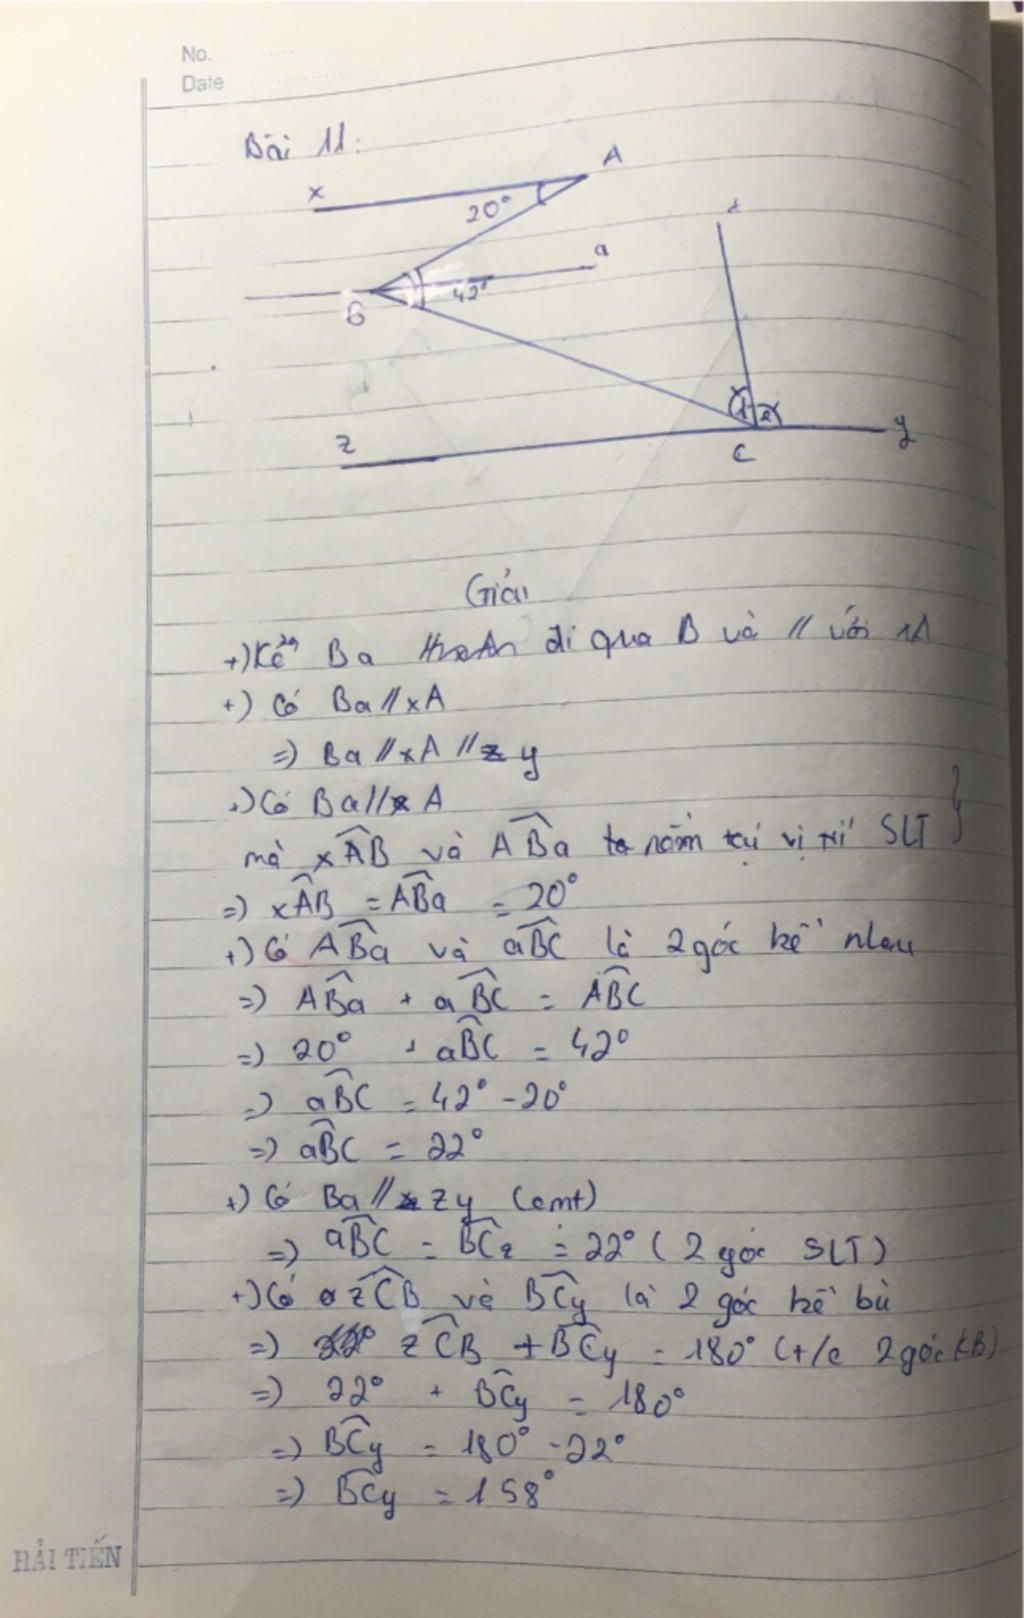 No.
Date
Bài 11:
A
x
20°
t
a
42°
B
1 2
z
y
C
Giải
+) Kẻ Ba đi qua B và // với xA
+) Có Ba // xA
=) Ba // xA // zy
+) Có Ba // xA
mà xAB và ABa nằm tại vị trí SLT }
=) xAB = ABa = 20°
+) Có ABa và aBC là 2 góc kề nhau
=) ABa + aBC = ABC
=) 20° + aBC = 42°
=) aBC = 42° - 20°
=) aBC = 22°
+) Có Ba // zy (cmt)
=) aBC = BCz = 22° ( 2 góc SLT )
+) Có zCB và BCy là 2 góc kề bù
=) zCB + BCy = 180° (t/c 2 góc KB)
=) 22° + BCy = 180°
=) BCy = 180° - 22°
=) BCy = 158°
HẢI TIẾN